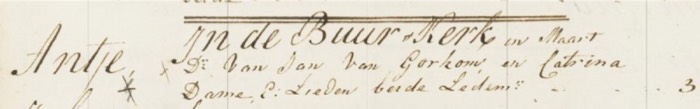 In de Buur Kerk in Maart
Antje Dr Van Jan Van Gorkom en Catrina
Dame E: Lieden beide Ledem: 3